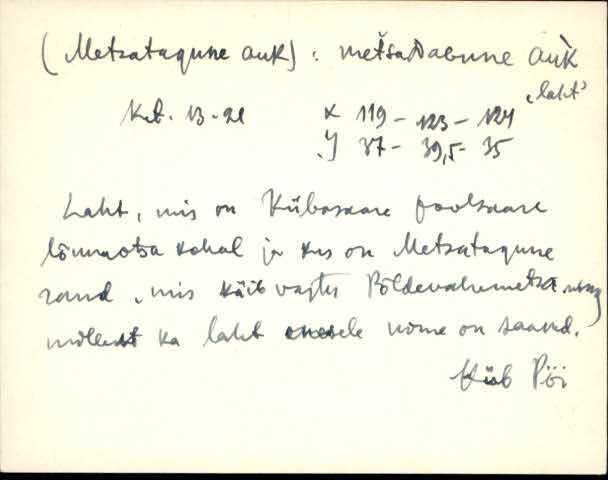 (Metsatagune auk) : metsaDaGune aùk
„laht"
Krt. 13-21 X 119 - 123 - 124
Y 37 - 39,5 - 35
Laht, mis on Kübassaare poolsaare
lõunaotsa kohal ja kus on Metsatagune
rand, mis käib vastu Põldevahemetsa ning
millest ka laht enesele nime on saanud.
Küb Pöi